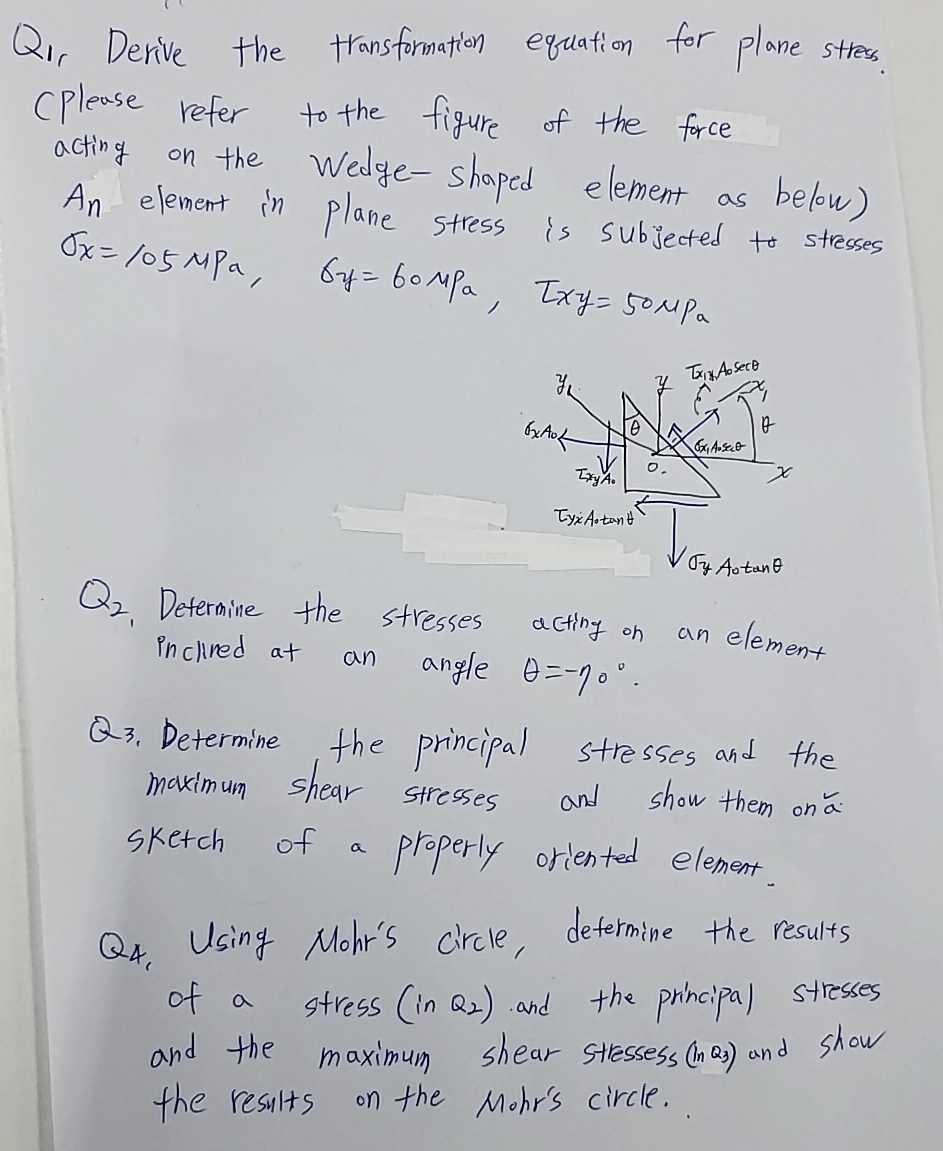 Q1, Derive the transformation equation for plane stress.
(please refer to the figure of the force
acting on the Wedge-shaped element as below)
An element in plane stress is subjected to stresses
σx = 105 MPa, σy = 60 MPa, τxy = 50 MPa
y1 y τx1y1 A0 secθ x1
θ
σx A0 θ σx1 A0 secθ
τxy A0 0 x
τyx A0 tanθ
σy A0 tanθ
Q2, Determine the stresses acting on an element
inclined at an angle θ=-70°.
Q3, Determine the principal stresses and the
maximum shear stresses and show them on a
sketch of a properly oriented element.
Q4, Using Mohr's circle, determine the results
of a stress (in Q2) and the principal stresses
and the maximum shear stressess (in Q3) and show
the results on the Mohr's circle.